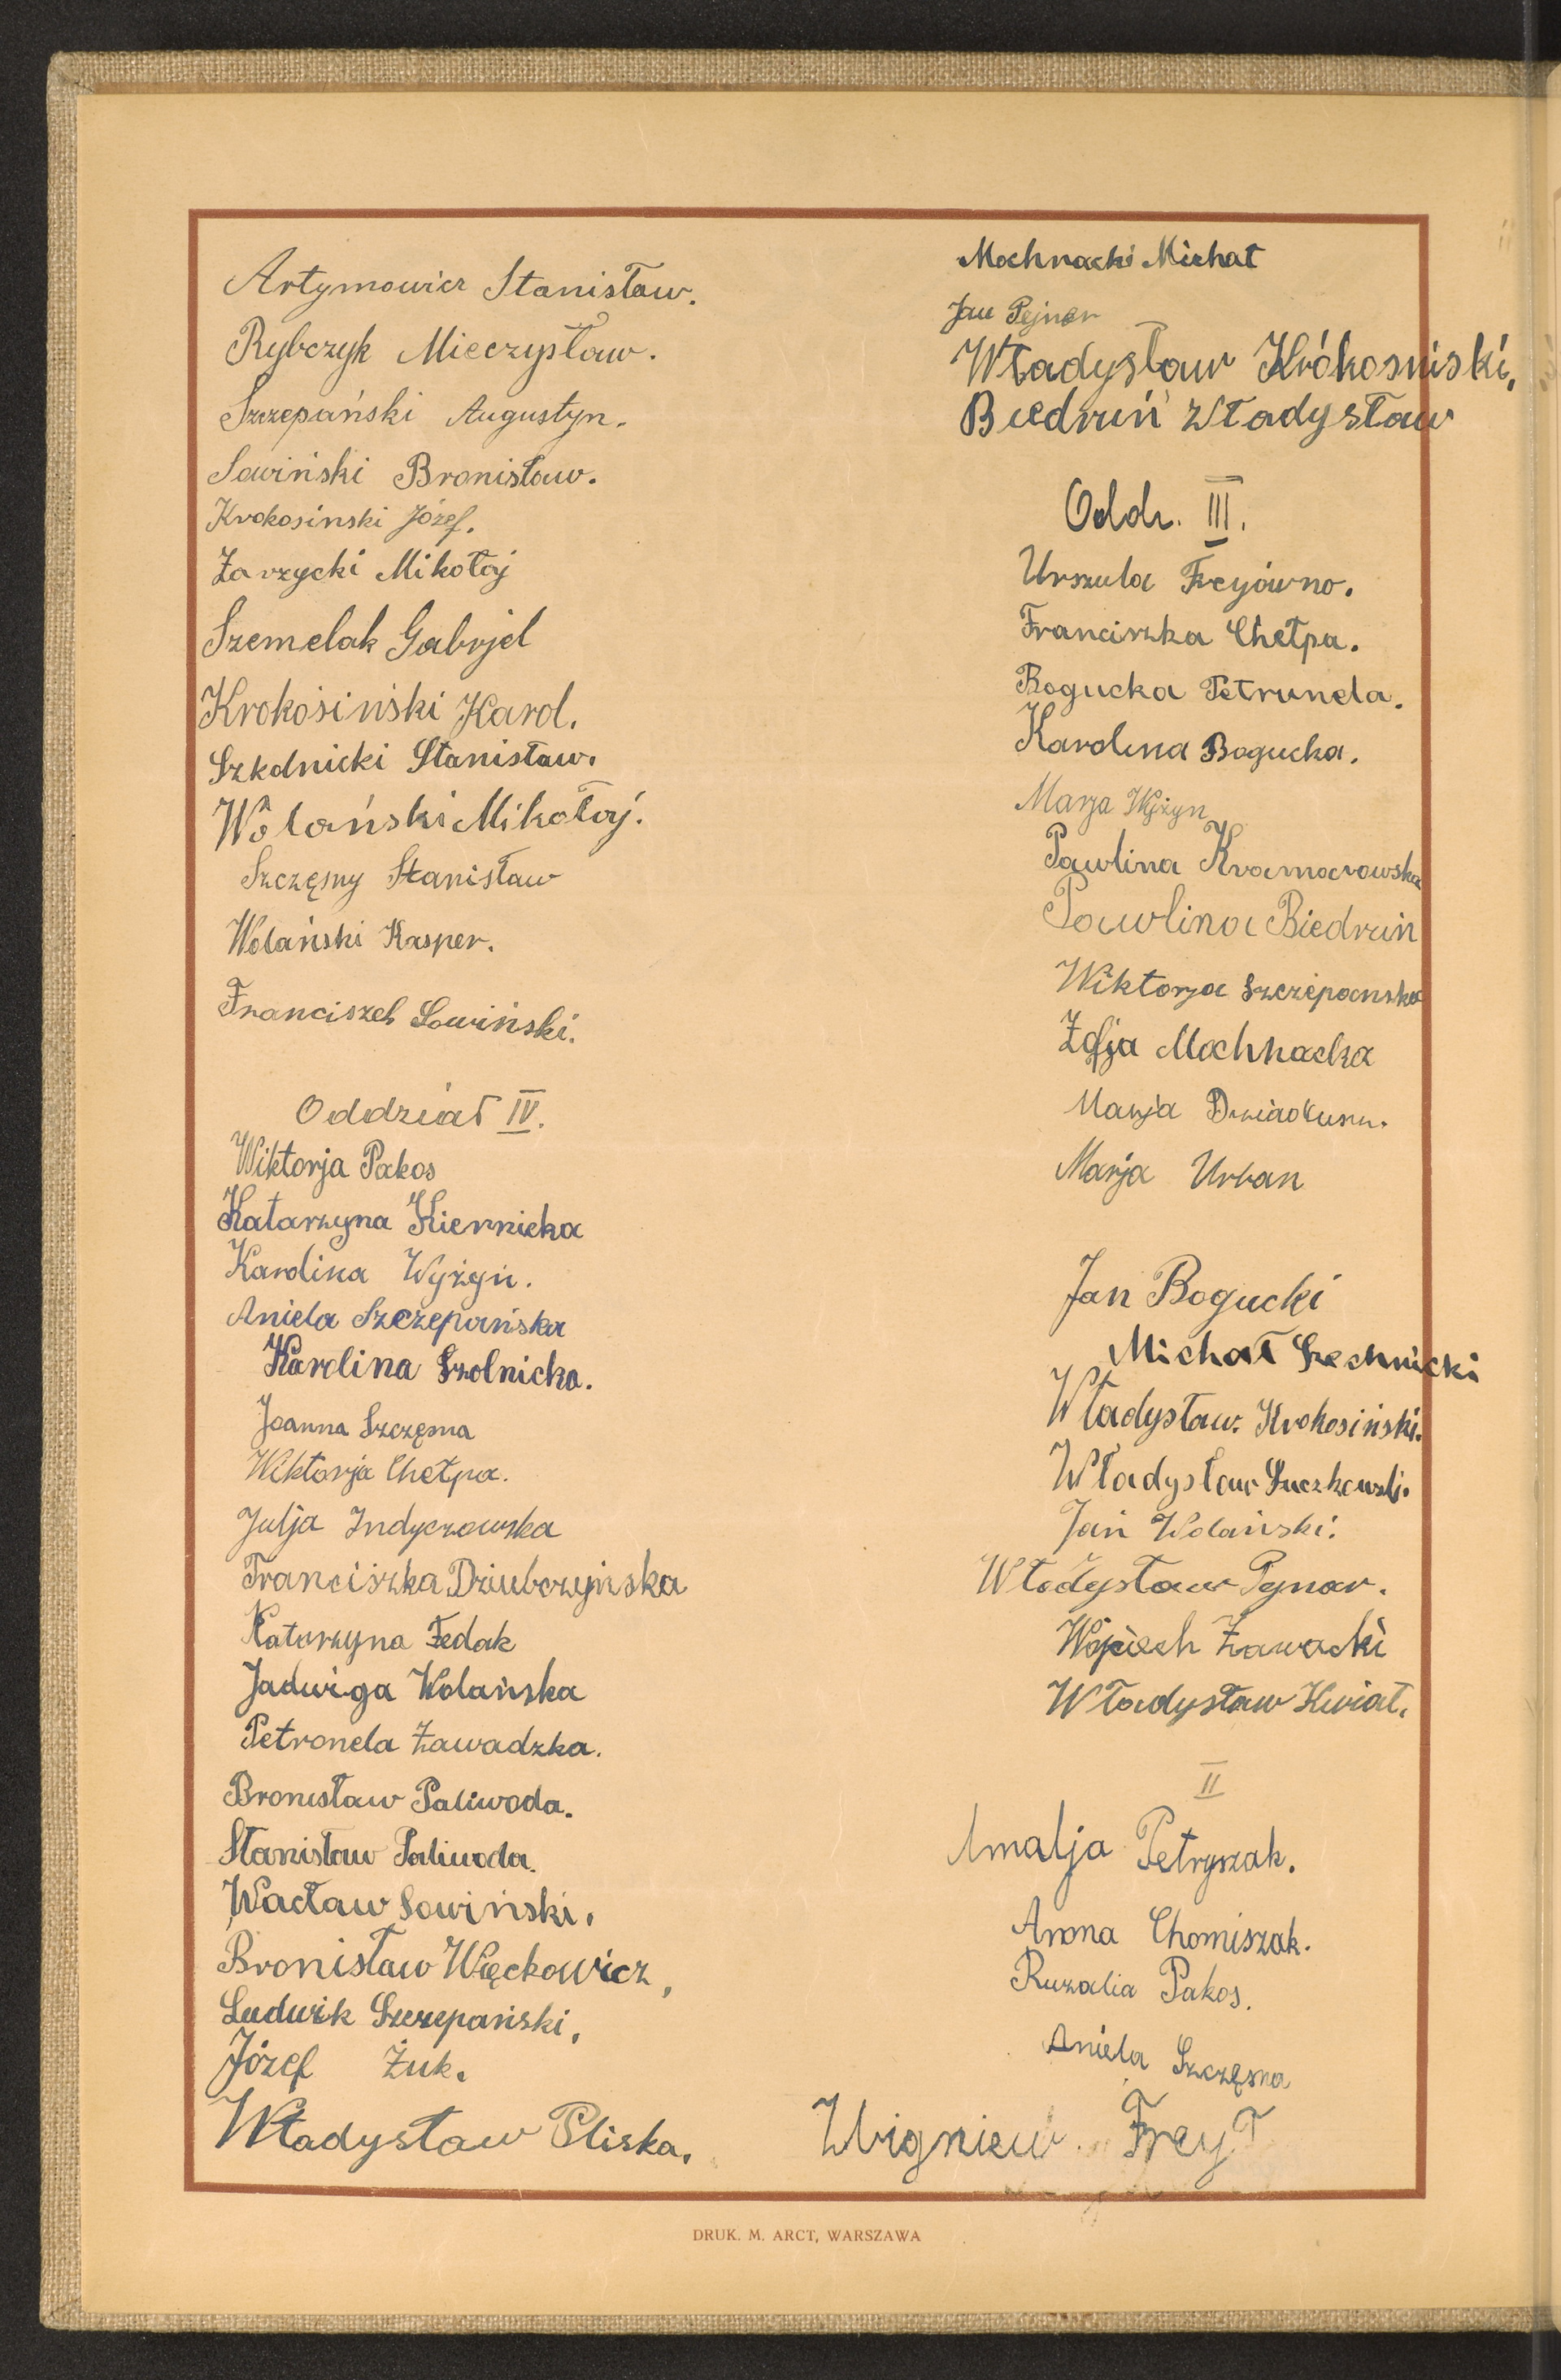 Artymowicz Stanisław.
Rybczyk Mieczysław.
Szczepański Augustyn.
Sawiński Bronisław.
Krokosinski Józef.
Zarzycki Mikołaj
Szemelak Gabrjel
Krokosiński Karol.
Szkolnicki Stanisław.
Wolański Mikołaj.
Szczęsny Stanisław
Wolański Kasper.
Franciszek Sowiński.
Oddział IV.
Wiktorja Pakos
Katarzyna Kiernicka
Karolina Wyżyn.
Aniela Szczepańska
Karolina Szolnicka.
Joanna Szczęsna
Wiktorja Chełpa.
Julja Indyczowska
Franciszka Dziubczyńska
Katarzyna Fedak
Jadwiga Wolańska
Petronela Zawadzka.
Bronisław Paliwoda.
Stanisław Paliwoda.
Wacław Sowiński.
Bronisław Więckowicz,
Ludwik Szczepański,
Józef Żuk.
Władysław Pliska.
Mochnacki Michał
Jan Pejner
Władysław Krókosniski,
Biedruń Władysław
Oddz. III.
Urszula Freyówna.
Franciszka Chełpa.
Bogucka Petrunela.
Karolina Bogucka.
Marja Wyżyn
Pawlina Kramarowska
Pawlina Biedruń
Wiktorja Szczepanska
Zofja Mochnacka
Marja
Marja Urban
Jan Bogucki
Michał
Władysław. Krokosiński.
Władysław Suczkowski.
Jan Wolański.
Władysław Pynar.
Wojciech Zawacki
Władysław Kwiat.
II
Amalja Petryszak.
Anna Chomiszak.
Ruzalia Pakos.
Aniela Szczęsna
Zbigniew Freyt
DRUK. M. ARCT, WARSZAWA